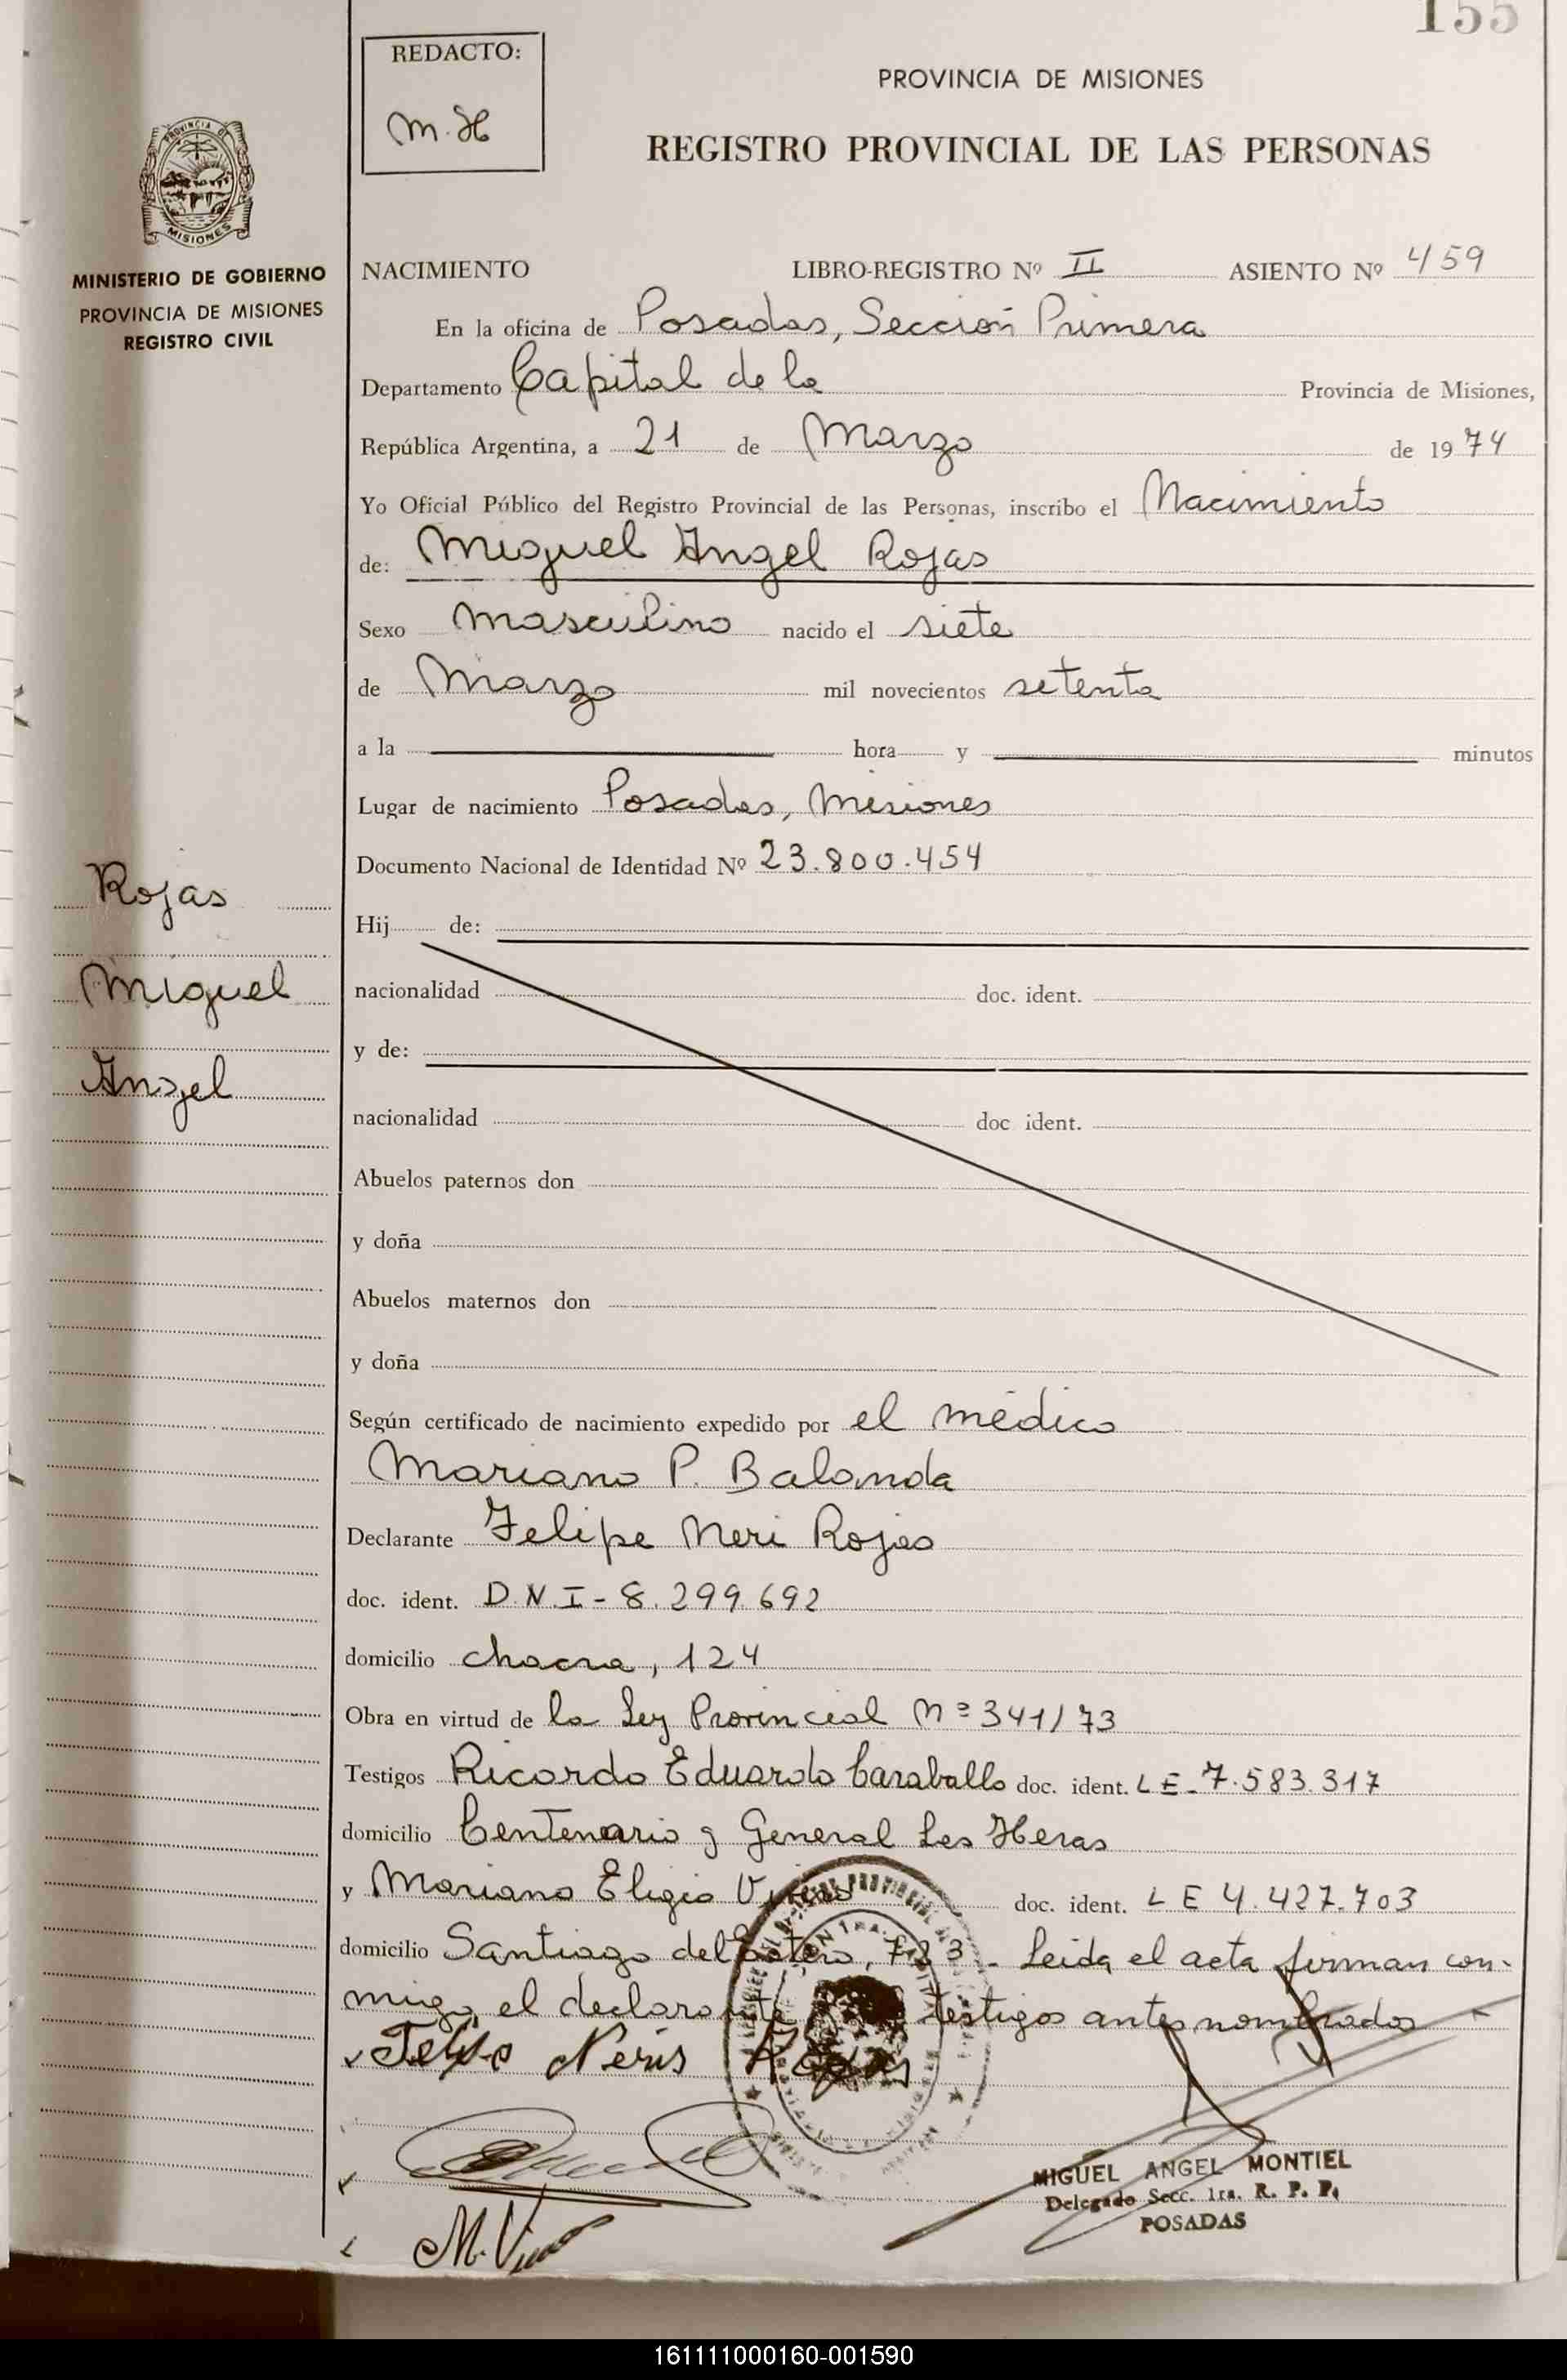 155
REDACTO:
M.H
PROVINCIA DE MISIONES
REGISTRO PROVINCIAL DE LAS PERSONAS
PROVINCIA DE
MISIONES
MINISTERIO DE GOBIERNO
PROVINCIA DE MISIONES
REGISTRO CIVIL
NACIMIENTO LIBRO-REGISTRO Nº II ASIENTO Nº 459
En la oficina de Posadas, Sección Primera
Departamento Capital de la Provincia de Misiones,
República Argentina, a 21 de Marzo de 1974
Yo Oficial Público del Registro Provincial de las Personas, inscribo el Nacimiento
de: Miguel Angel Rojas
Sexo Masculino nacido el siete
de Marzo mil novecientos setenta
a la hora y minutos
Lugar de nacimiento Posadas, Misiones
Documento Nacional de Identidad Nº 23.800.454
Rojas
Miguel
Angel
Hij de:
nacionalidad doc. ident.
y de:
nacionalidad doc ident.
Abuelos paternos don
y doña
Abuelos maternos don
y doña
Según certificado de nacimiento expedido por el médico
Mariano P. Balanda
Declarante Felipe Neri Rojas
doc. ident. D.N.I - 8.299.692
domicilio chacra, 124
Obra en virtud de la Ley Provincial Nº 341/73
Testigos Ricardo Eduardo Caraballo doc. ident. L E - 7.583.317
domicilio Centenario y General Las Heras
y Mariano Eligio doc. ident. L E 4.427.703
domicilio Santiago del Estero, - Leida el acta firman con-
migo, el declarante testigos antes nombrados
Felipe Neris Rojas
M.
MIGUEL ANGEL MONTIEL
Delegado Secc. 1ra. R. P. P.
POSADAS
161111000160-001590